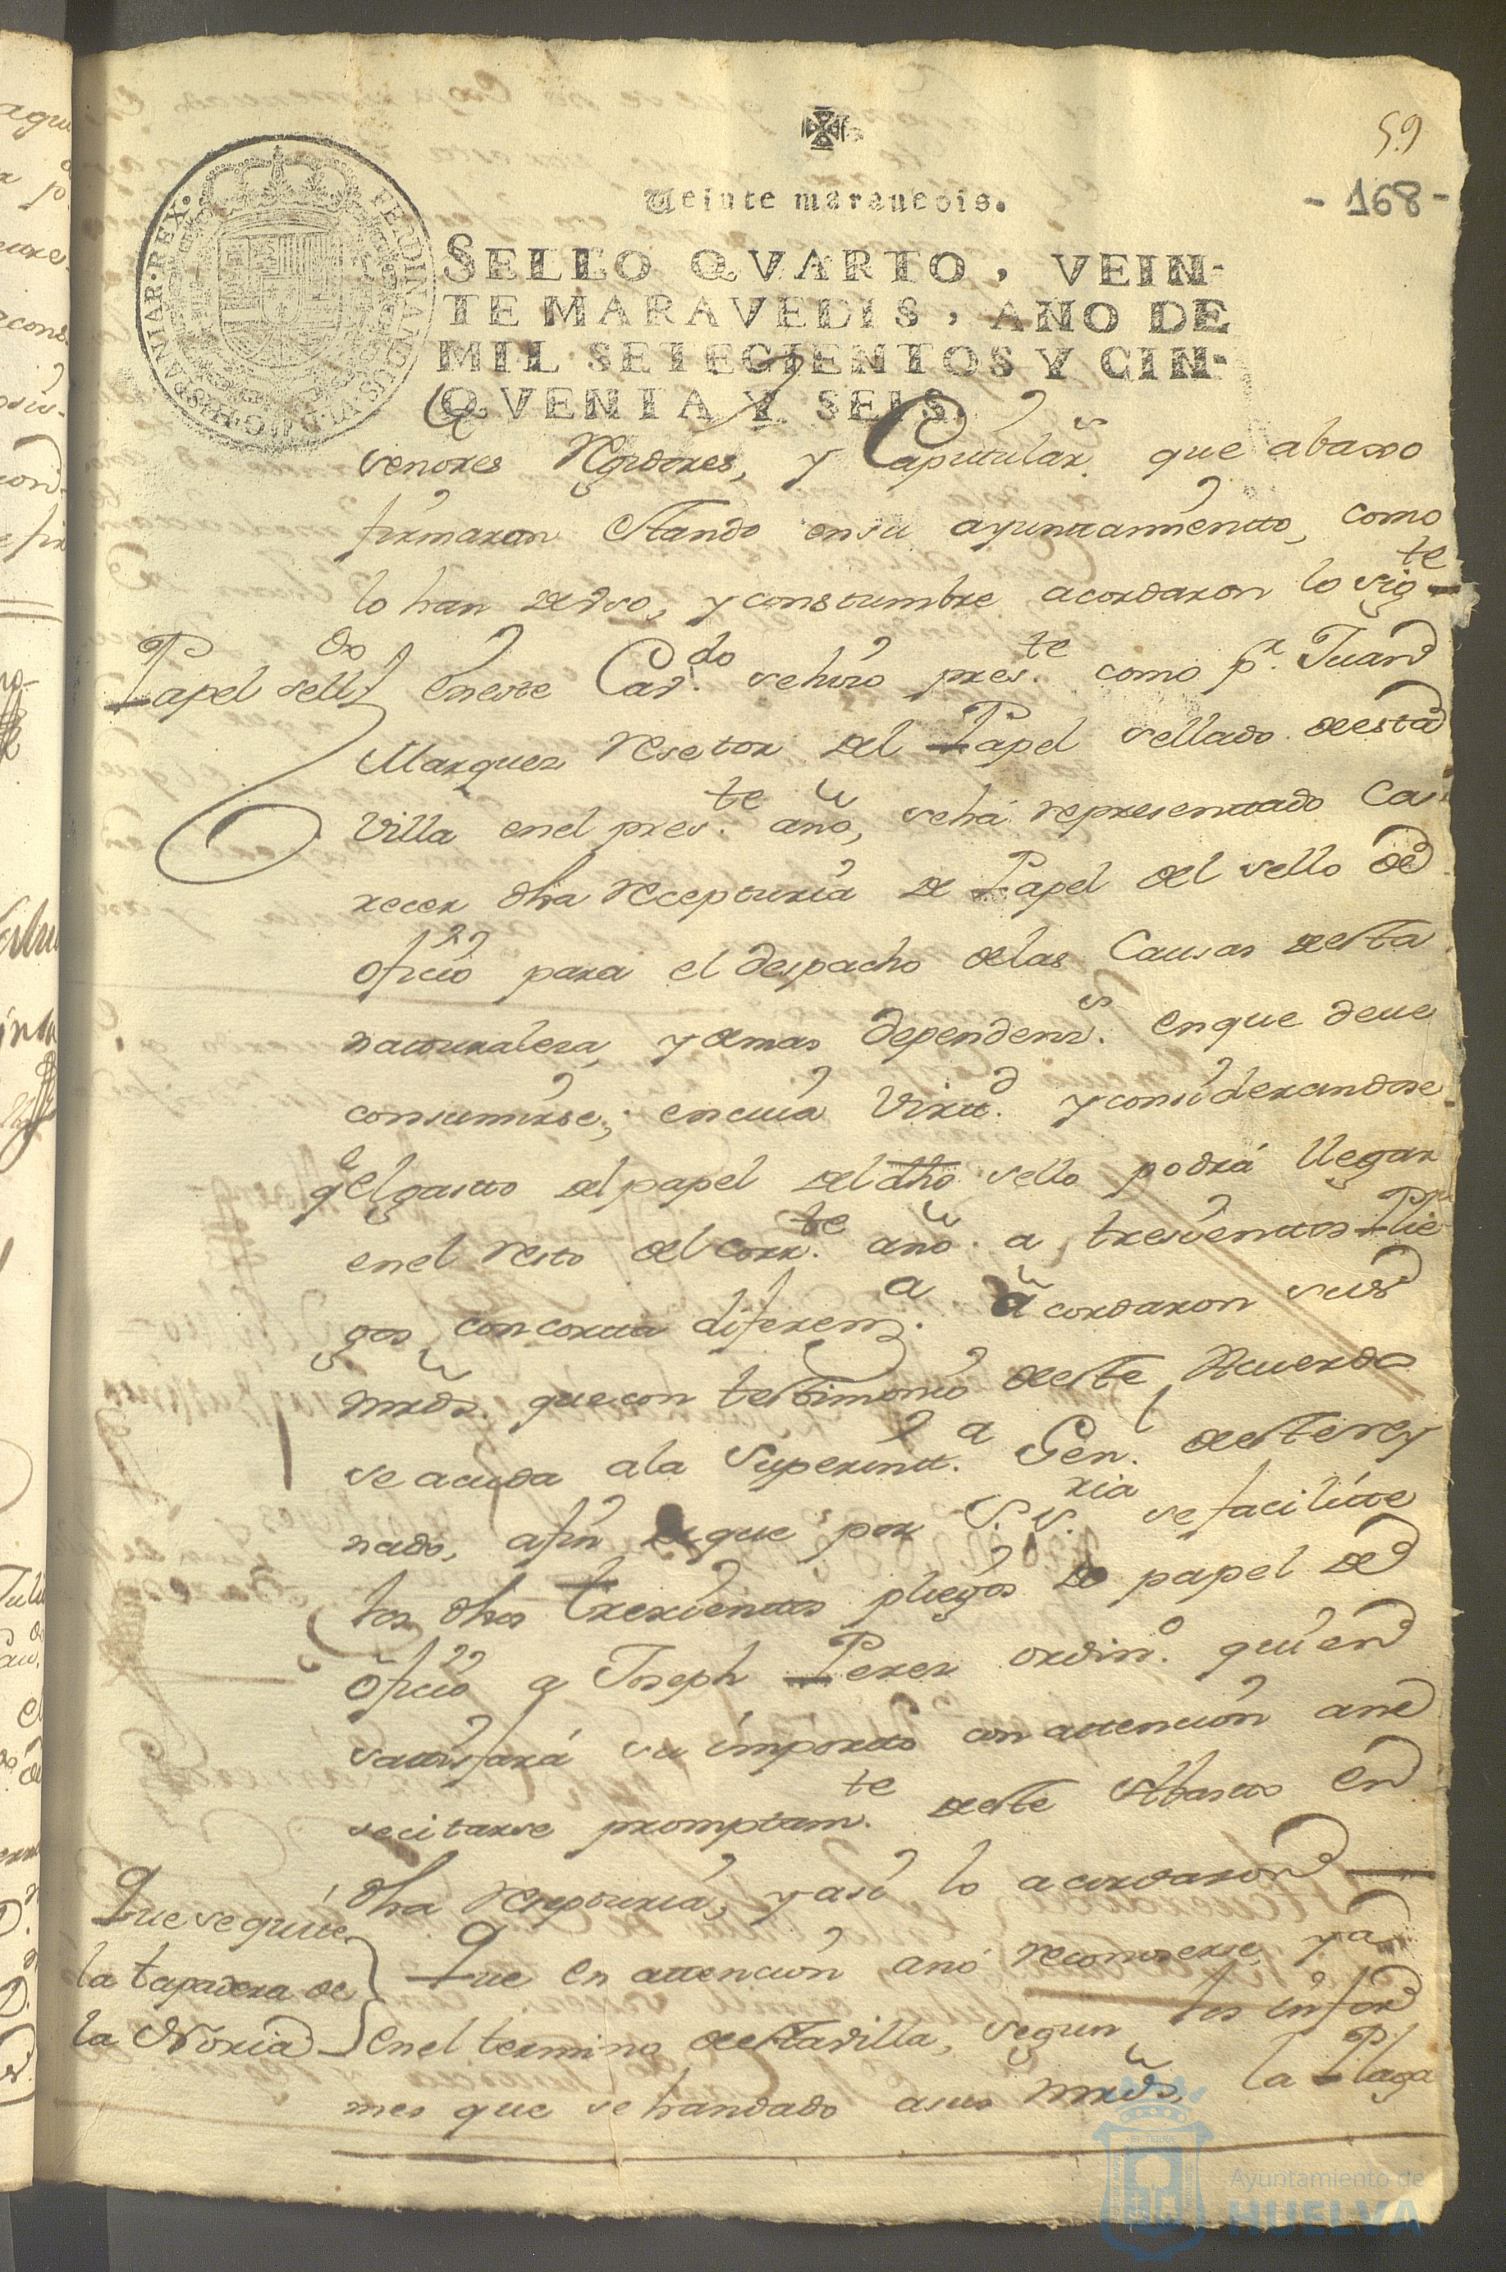 59
- 168 -
Veinte maravedis.
FERDINANDUS·VI·D·G·HISPANIAR·REX·
SELLO QVARTO, VEIN-
TE MARAVEDIS, AÑO DE
MIL SETECIENTOS Y CIN-
QVENTA Y SEIS.
senores Rexidores, y Capitulars. que abaxo
firmaron estando en su ayuntamiento, como
lo han de vso, y constumbre acordaron lo sigte
Papel selldo
En este Cavdo. se hizo preste. como pr. Juan
Marquez resetor del Papel sellado de esta
Villa en el preste. año, se há representado Ca-
recer dha recepturía de Papel del sello de
oficio para el despacho de las Causas de esta
naturaleza, y demas dependens. en que deve
consumirse; en cuia Virtd. y considerandose
qe el gasto del papel del dho sello podrá llegar
en el resto del corrte. año a trescientos Plie
gos con corta diferenza. acordaron sus
mrds. que con testimonio de este Acuerdo
se acuda a la Superinta. Genl. de este rey
nado, a fin de que por S. Sria. se facilitte
los dhos trescientos pliegos de papel de
oficio a Joseph Perez ordino. quien
satisfará su importe con attención a ne
secitarse promptamte. de este Abasto en
dha recepturía, y así lo acordaron
Que se quitte
la tapadera de
la Noria
Que en attencion a no reconoserse ya
en el termino de esta villa, segun los infor
mes que se han dado a sus mrds, la Plaga
Ayuntamiento de
HUELVA